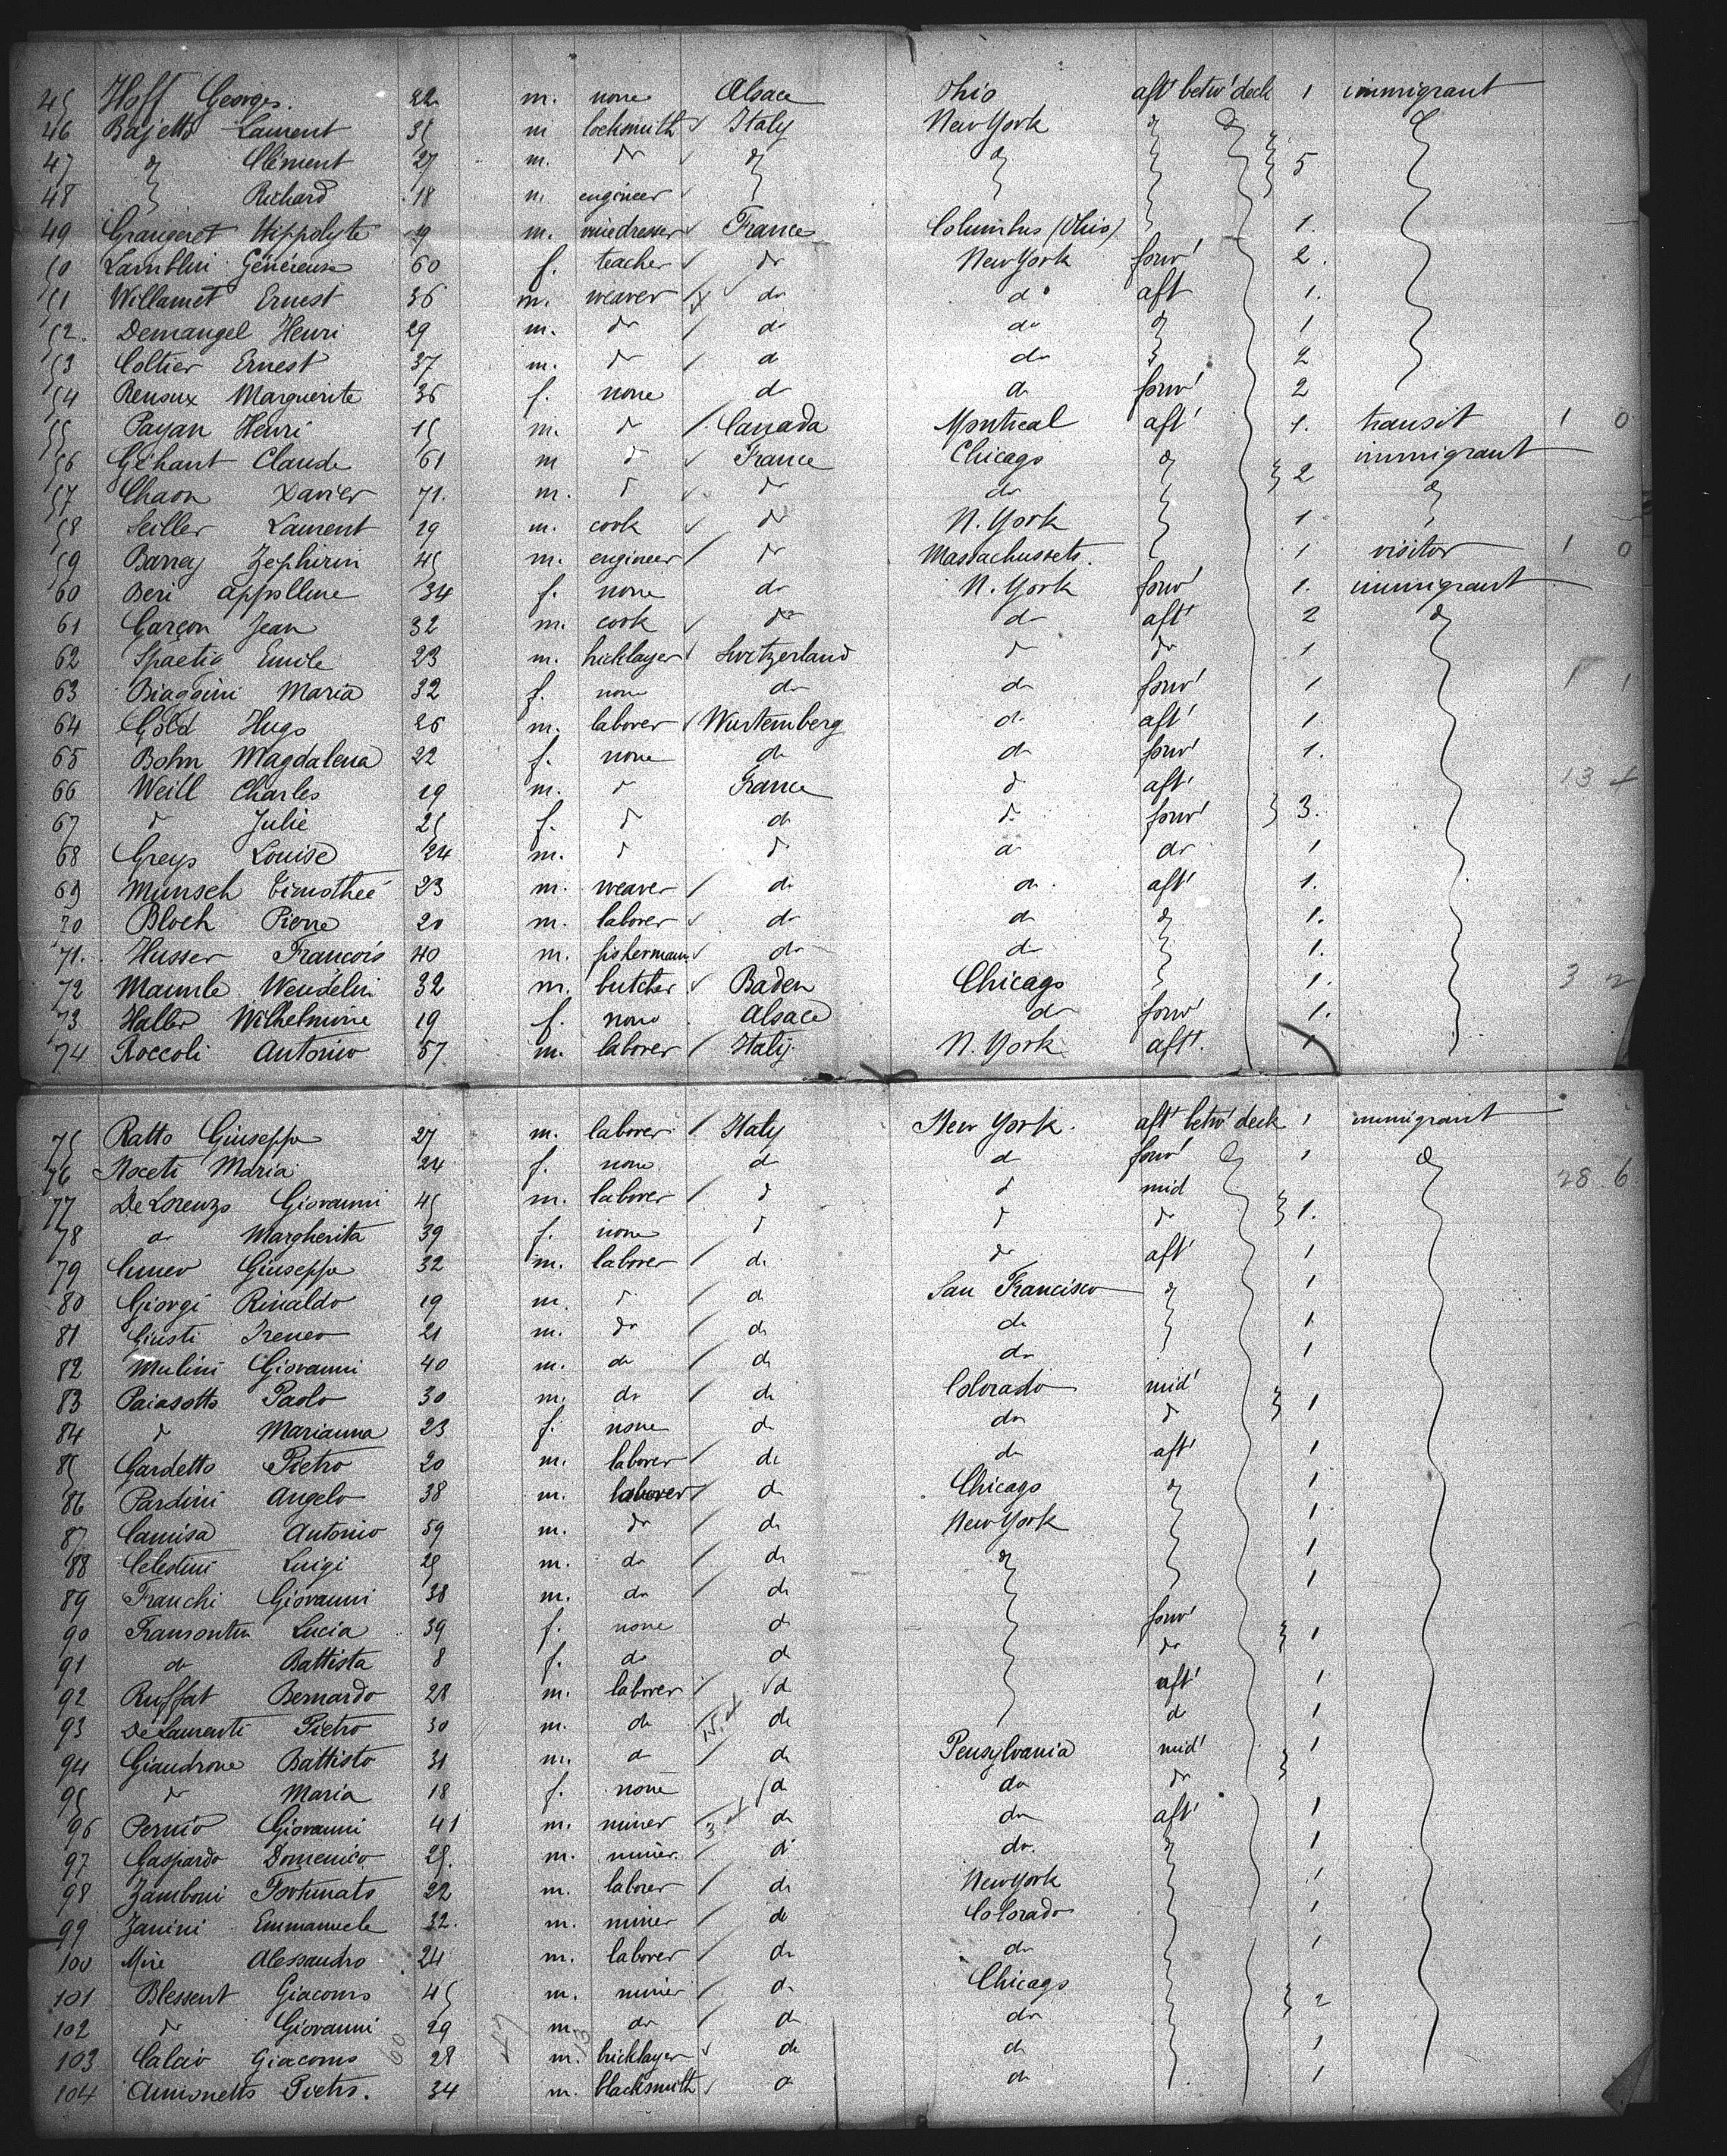 45 Hoff Georges. 22 m. none Alsace Ohio aft betw deck 1 immigrant
46 Bajetto Laurent 35 m locksmith Italy New York do do
47 do Clément 27 m. do do do 5
48 Richard 18 m. engineer
49 Grangeret Hippolyte 19 m. vinedresser France Columbus (Ohio) 1.
50 Lamblin Généreuse 60 f. teacher do New York forw' 2.
51 Willamet Ernest 36 m. weaver do do aft 1.
52. Demangel Henri 29 m. do do do do 1
53 Coltier Ernest 37 m. do do do 2
54 Renoux Marguerite 36 f. none do do forw' 2
55 Payan Henri 15 m. do Canada Montreal aft' 1. transit 1 0
56 Géhant Claude 61 m do France Chicago do 2 immigrant
57 Chaon Xavier 71. m. do do do do
58 Seiller Laurent 19 m. cook do N. York 1
59 Barrey Zephirin 45 m. engineer do Massachussets. 1 visitor 1 0
60 Beri Appolline 34 f. none do N. York forw' 1. immigrant
61 Garçon Jean 32 m. cook do do aft' 2 do
62 Spaetig Emile 23 m. bricklayer Switzerland do do 1
63 Biaggini Maria 32 f. none do do forw' 1 1 1
64 Gold Hugo 26 m. laborer Wurtemberg do aft' 1.
65 Bohn Magdalena 22 f. none do do forw' 1.
66 Weill Charles 19 m. do France do aft' 13 4
67 do Julie 25 f. do do do forw' 3.
68 Greys Louise 24 m. do do do do 1
69 Munsch Timothée 23 m. weaver do do aft' 1.
70 Bloch Pierre 20 m. laborer do do do 1.
71. Husser Francois 40 m. fishermann do do 1.
72 Maumle Wendelin 32 m. butcher Baden Chicago 1. 3 2
73 Haller Wilhelmine 19 f. none Alsace do forw' 1.
74 Roccoli Antonio 57 m. laborer Italy N. York aft'. 1
75 Ratto Giuseppe 27 m. laborer Italy New York. aft' betw deck 1 immigrant
76 Noceti Maria 24 f. none do do forw' do 1 do
77 De Lorenzo Giovanni 45 m. laborer do do mid 1. 28 6
78 do Margherita 39 f. none do do do
79 Cuneo Giuseppe 32 m. laborer do do aft' 1
80 Giorgi Rinaldo 19 m. do do San Francisco do 1
81 Giusti Ireneo 21 m. do do do 1
82 Mulini Giovanni 40 m. do do do 1
83 Paiasotto Paolo 30 m. do do Colorado mid' 1
84 do Marianna 23 f. none do do do
85 Gardetto Pietro 20 m. laborer do do aft' 1
86 Pardini Angelo 38 m. laborer do Chicago do 1
87 Camisa Antonio 59 m. do do New York 1
88 Celestini Luigi 25 m. do do do 1
89 Franchi Giovanni 38 m. do do 1
90 Lucia 39 f. none do forw' 1
91 do Battista 8 f. do do do
92 Ruffat Bernardo 28 m. laborer do aft' 1
93 De Laurenti Pietro 30 m. do do do 1
94 Giandrone Battisto 31 m. do do Pensylvania mid' 1
95 do Maria 18 f. none do do do
96 Pernio Giovanni 41 m. miner do do aft' 1
97 Gaspardo Domenico 25. m. miner. do do. do 1
98 Zamboni Fortunato 22 m. laborer do New York 1
99 Zanini Emmanuele 32. m. miner do Colorado 1
100 Miré Alessandro 24 m. laborer do do 1
101 Blessent Giacomo 45 m. miner do Chicago 2
102 do Giovanni 29 m. do do do
103 Calcio Giacomo 28 m. bricklayer do do 1
104 Amionetto Pietro. 34 m. blacksmith do do 1
60 47 13